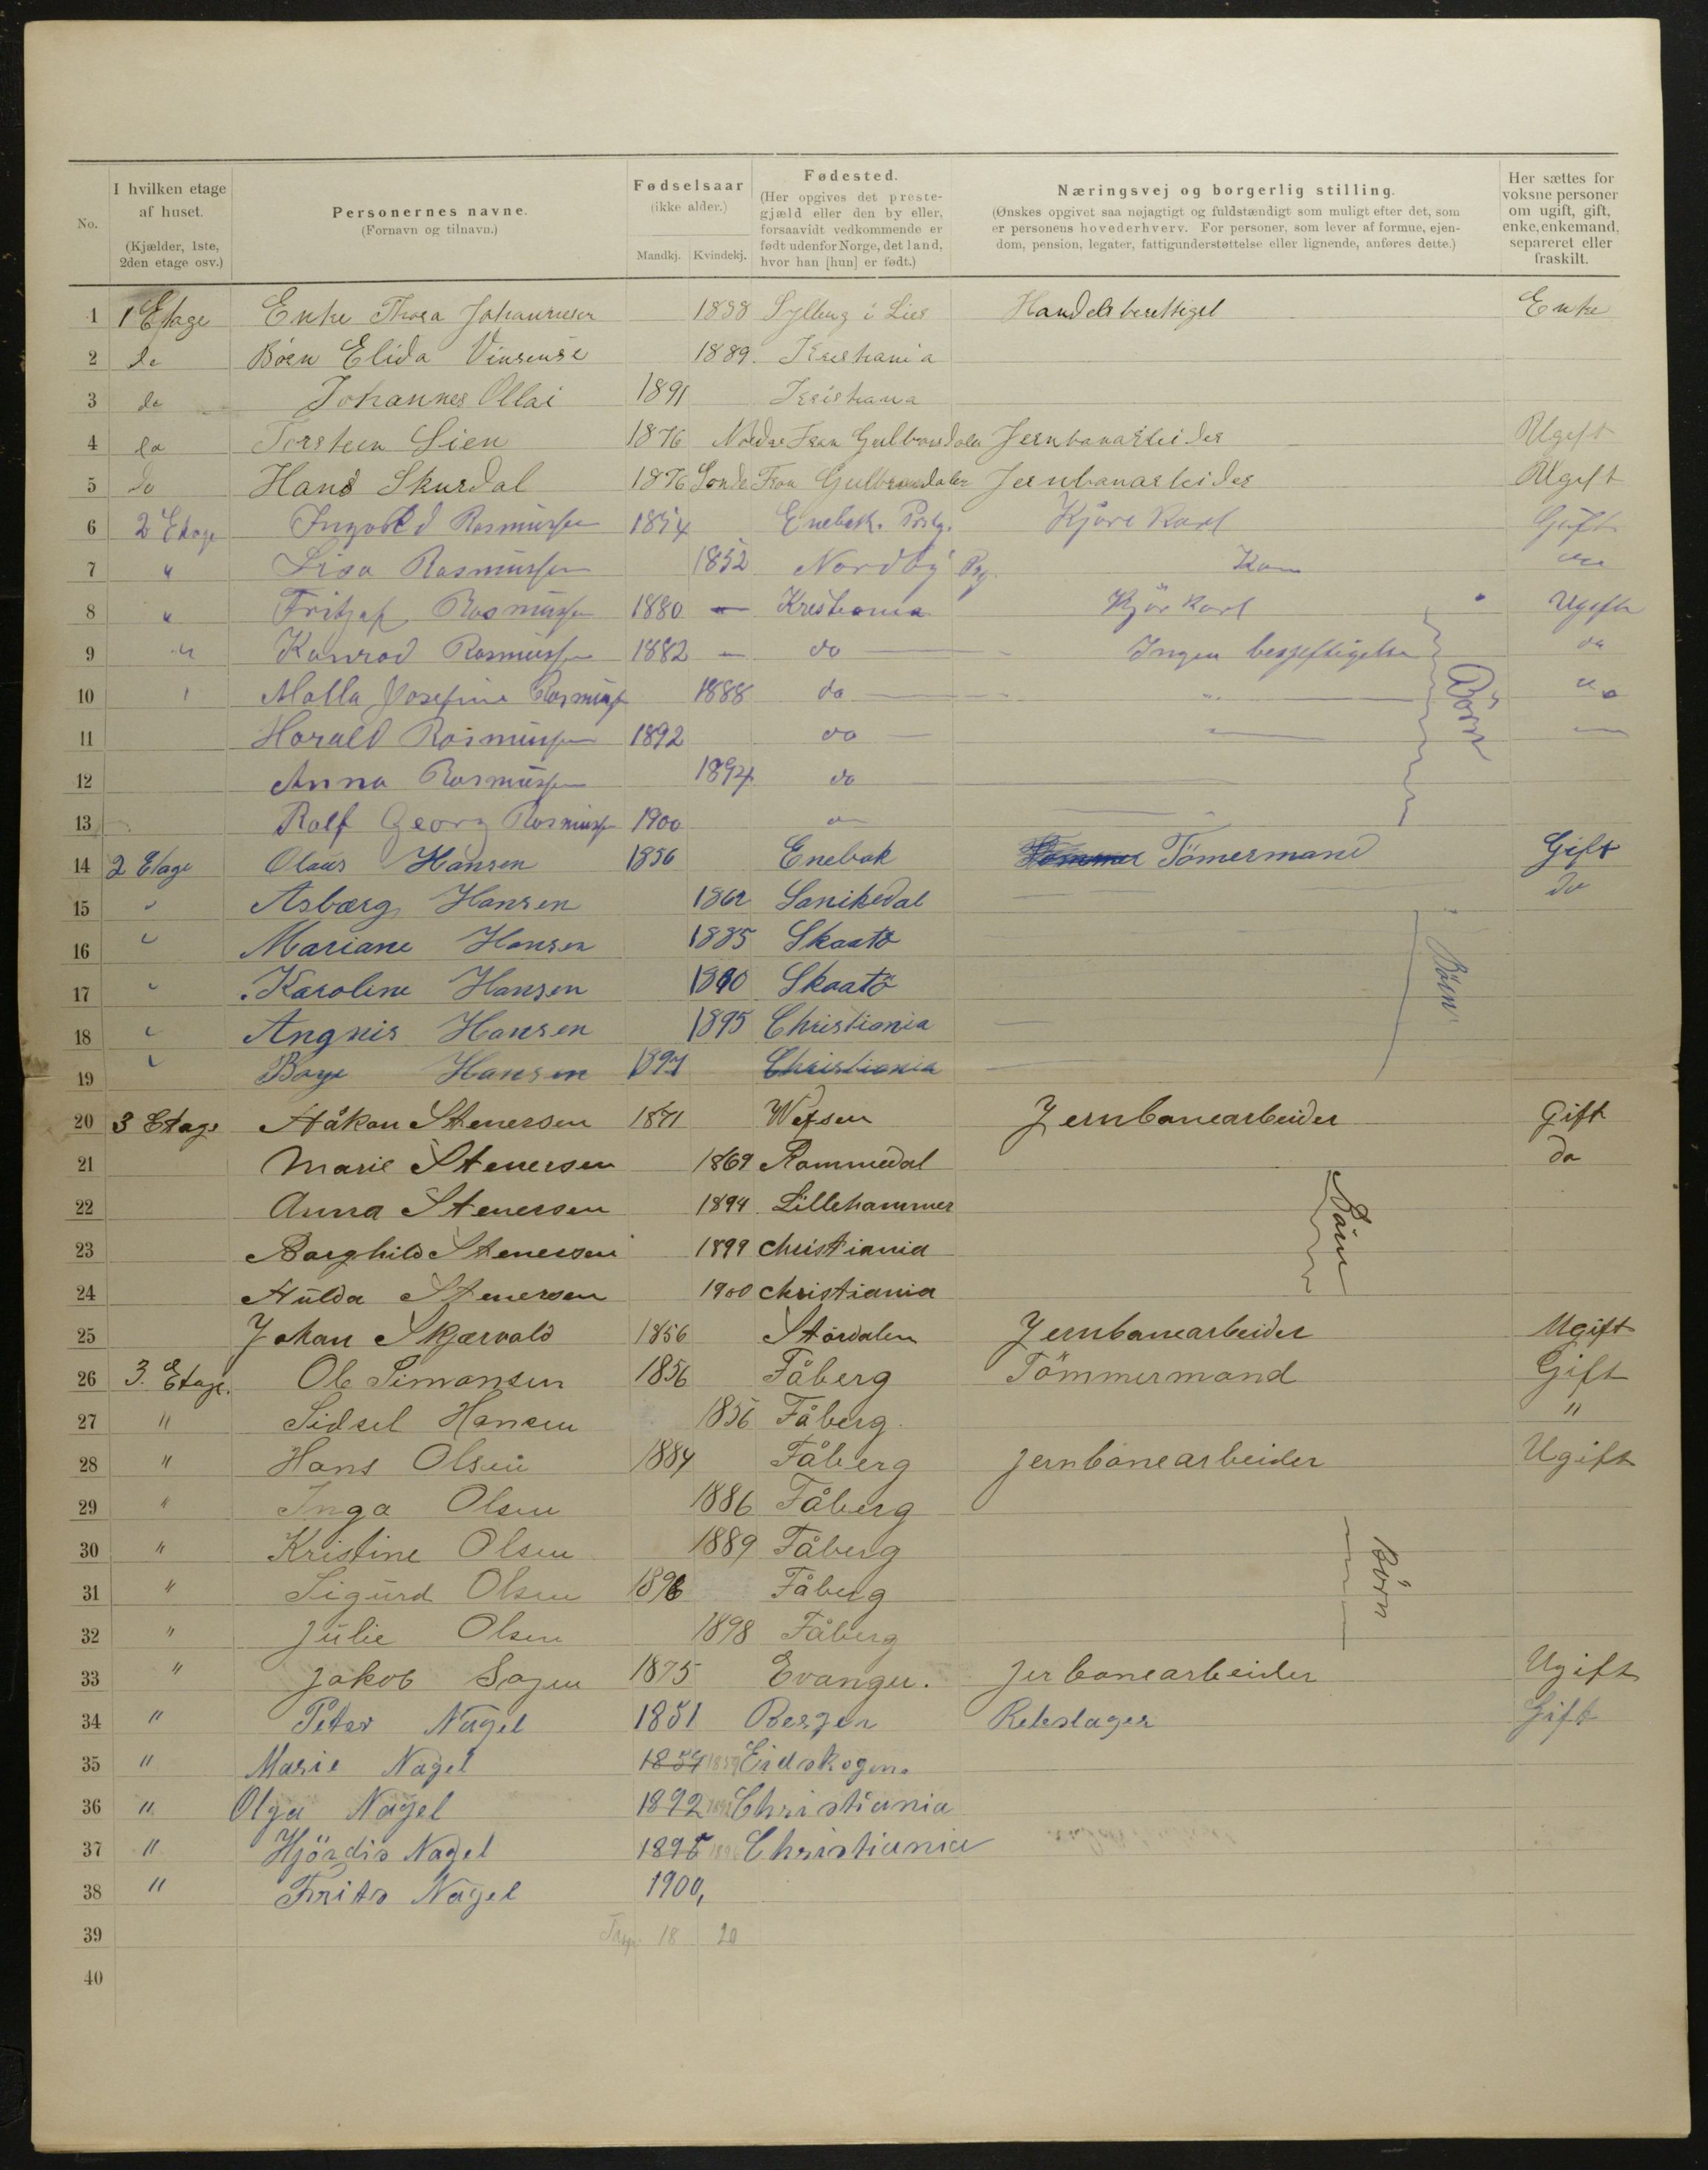 No.
I hvilken etage af huset.
(Kjælder, 1ste, 2den etage osv.)
Personernes navne.
(Fornavn og tilnavn.)
Fødselsaar
(ikke alder.)
Mandkj. Kvindekj.
Fødested.
(Her opgives det prestegjæld eller den by eller, forsaavidt vedkommende er født udenfor Norge, det land, hvor han [hun] er født.)
Næringsvej og borgerlig stilling.
(Ønskes opgivet saa nøjagtigt og fuldstændigt som muligt efter det, som er personens hovederhverv. For personer, som lever af formue, ejendom, pension, legater, fattigunderstøttelse eller lignende, anføres dette.)
Her sættes for voksne personer om ugift, gift, enke, enkemand, separeret eller fraskilt.
1 1 Etage Enke Thora Johannesen 1838 Sylling i Lier Handelsberettiget Enke
2 do Börn Elida Vinsense 1889. Kristiania
3 do Johannes Ollai 1891 Kristiana
4 do Torsteen Lien 1876 Nordre Fron Gulbrandsdalen Jernbanarbeider Ugift
5 do Hans Skurdal 1876 Sondre Fron Gulbrandsdalen Jernbanarbeider Ugift
6 2 Etage Ingvald Rasmussen 1854 Enebak. Prstg. Kjöre Karl Gift
7 " Lisa Rasmussen 1852 Nordby Pg. Kone do
8 " Fritjof Rasmussen 1880 — Kristiania Kjör Karl Ugift
9 " Konrad Rasmussen 1882 — do Ingen beskjeftigelse do
10 " Malla Josefine Rasmussen 1888 do " do
11 Harald Rasmussen 1892 do —
12 Anna Rasmussen 1894 do
13 Ralf Georg Rasmussen 1900 do
Börn
14 2 Etage Olaus Hansen 1856 Enebak Tömmer Tömermand Gift
15 " Asbærg Hansen 1862 Sanikedal do
16 " Mariane Hansen 1885 Skaatö
17 " Karoline Hansen 1890 Skaatö
18 " Angnis Hansen 1895 Christiania
19 " Boye Hansen 1897 Christiania
Börn
20 3 Etage Håkan Stenersen 1871 Wefsen Jernbanearbeider Gift
21 Marie Stenersen 1869 Rommedal do
22 Anna Stenersen 1894 Lillehammer
23 Borghild Stenersen 1899 christiania
24 Hulda Stenersen 1900 christiania
Börn
25 Johan Skjærvold 1856 Stördalen Jernbanearbeider Ugift
26 3. Etage. Ole Simonsen 1856 Fåberg Tömmermand Gift
27 " Sidsel Hansen 1856 Fåberg. "
28 " Hans Olsen 1884 Fåberg Jernbanearbeider Ugift
29 " Inga Olsen 1886 Fåberg
30 " Kristine Olsen 1889 Fåberg
31 " Sigurd Olsen 1896 Fåberg
32 " Julie Olsen 1898 Fåberg
Börn
33 " Jakob Sagen 1875 Evanger. Jerbanearbeider Ugift
34 " Peter Nagel 1851 Bergen Rebslager Gift
35 " Marie Nagel 1859 1859 Eidskogen.
36 " Olga Nagel 1892 1892 Christiania
37 " Hjördis Nagel 1895 Christiania
38 " Frits Nagel 1900,
39 18 20
40